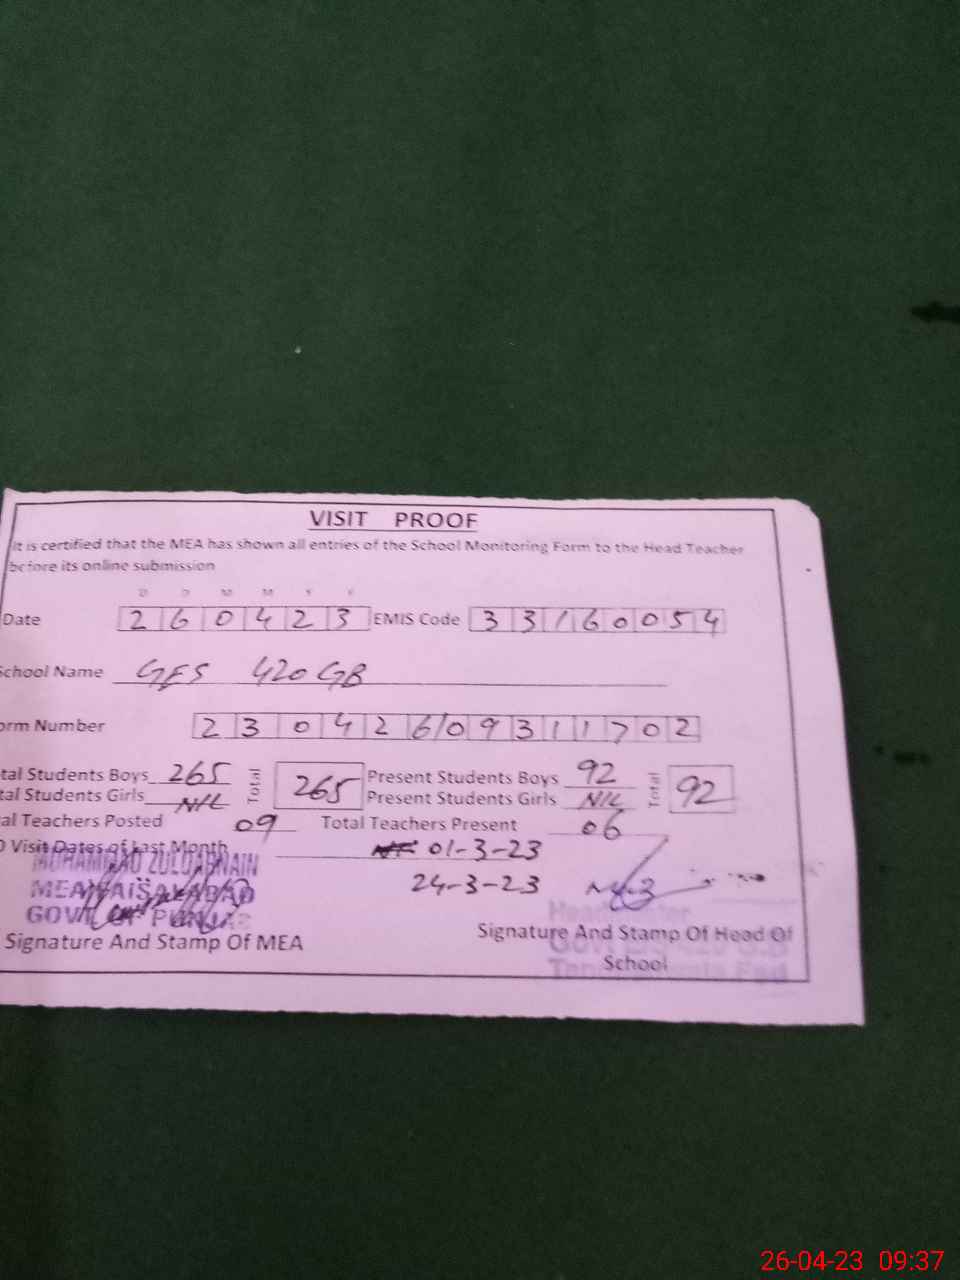 VISIT PROOF
It is certified that the MEA has shown all entries of the School Monitoring Form to the Head Teacher
before its online submission
D D M M Y Y
Date 260423 EMIS Code 33160054
School Name GES 420 GB
orm Number 23042609311702
tal Students Boys 265 Total 265 Present Students Boys 92 Total 92
tal Students Girls NIL Present Students Girls NIL
al Teachers Posted 09 Total Teachers Present 06
O Visit Dates of Last Month 01-3-23
24-3-23
MUHAMMAD ZULQARNAIN
MEA FAISALABAD
GOVT. OF PUNJAB
Signature And Stamp Of MEA
Headmaster
Signature And Stamp Of Head Of
School
26-04-23 09:37